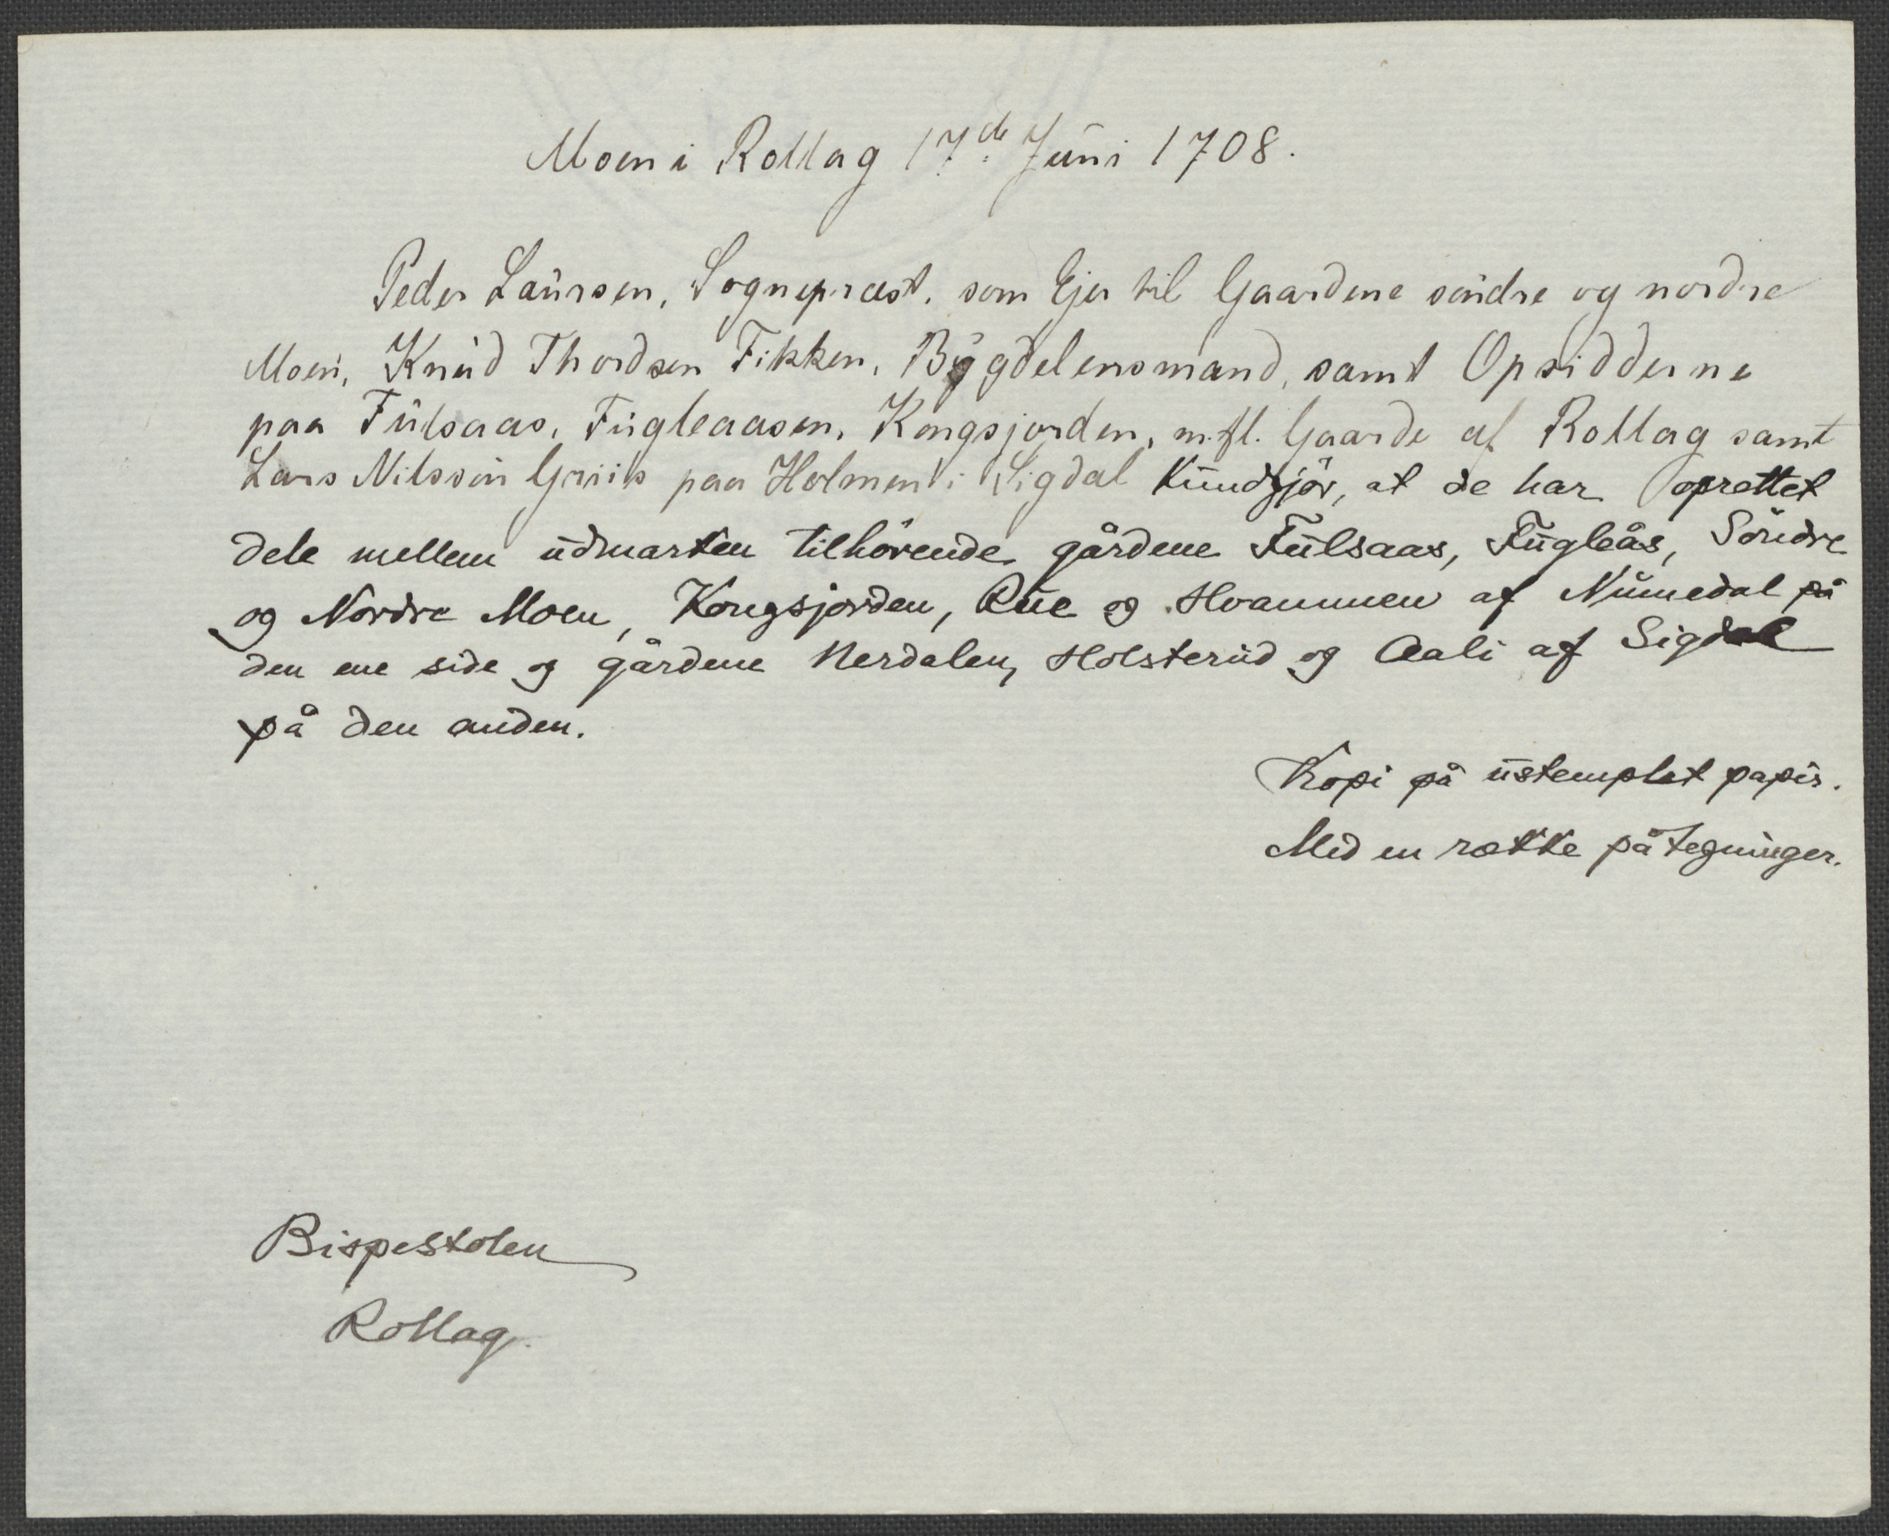 Moen i Rollag 17de Juni 1708.
Peder Laursen, Sogneprest, som Ejer til Gaardene søndre og nordre
Moen, Knud Thordsen Fikken, Bygdelensmand, samt Opsidderne
paa Fulsaas, Fugleaasen, Kongsjorden, m.fl. Gaarde af Rollag samt
Lars Nilssøn Griis paa Holmen i Sigdal Kundgjør, at de har oprettet
dele mellem udmarken tilhørende gårdene Fulsaas, Fugleås, Söndre
og Nordre Moen, Kongsjorden, Rue og Hvammen af Numedal på
den ene side og gårdene Nerdalen, Holsterud og Aali af Sigdal
på den anden.
Kopi på ustemplet papir.
Med en række påtegninger.
Bispestolen
Rollag.